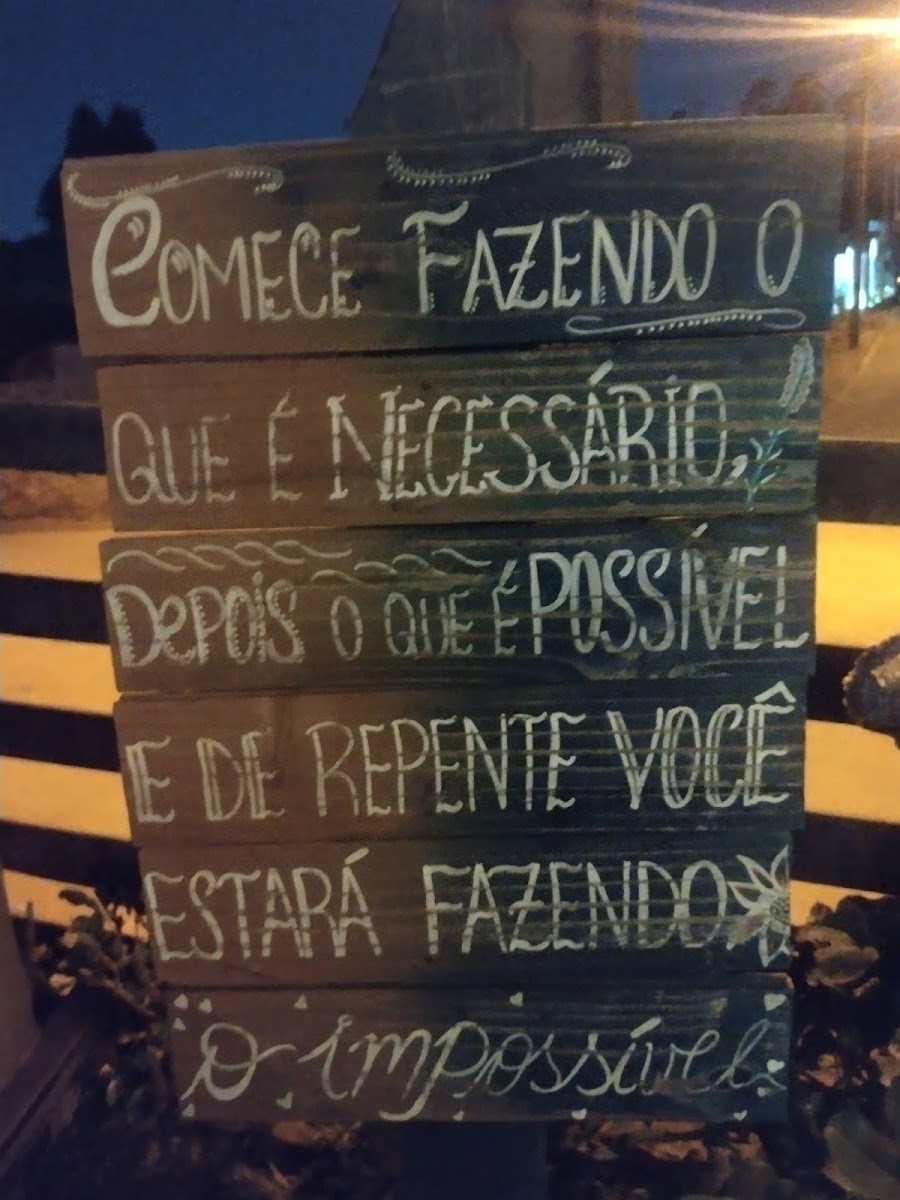 COMECE FAZENDO O
QUE É NECESSÁRIO,
DEPOIS O QUE É POSSÍVEL
E DE REPENTE VOCÊ
ESTARÁ FAZENDO
O impossível